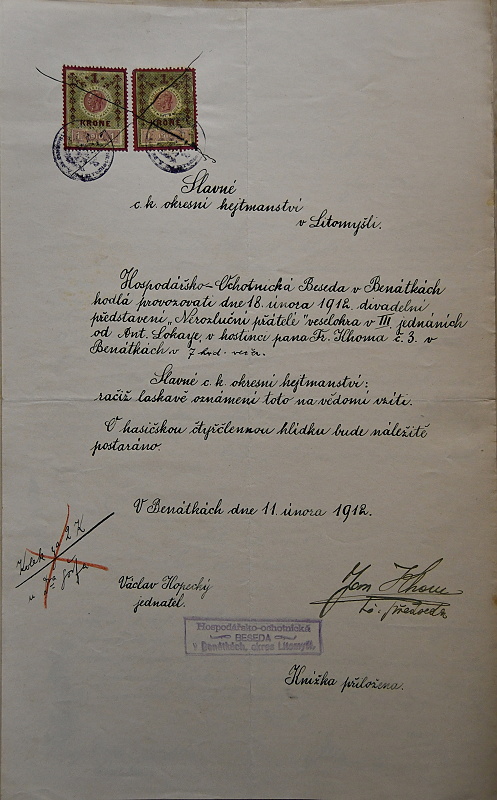 1 1
KRONE KRONE
1911
Slavné
c. k. okresní hejtmanství
v Litomyšli.
Hospodářsko-Ochotnická Beseda v Benátkách
hodlá provozovati dne 18. února 1912. divadelní
představení „Nerozluční přátelé" veselohra v III jednáních
od Ant. Lokaye, v hostinci pana Fr. Khoma č. 3. v
Benátkách v 7 hod. več.
Slavné c. k. okresní hejtmanství:
račiž laskavě oznámení toto na vědomí vzíti.
O hasičskou čtyřčlennou hlídku bude náležitě
postaráno.
V Benátkách dne 11. února 1912.
Kolek na 2 K
Václav Kopecký
jednatel.
Jan Khom
předseda
Hospodářsko-ochotnická
BESEDA
v Benátkách, okres Litomyšl.
Knížka přiložena.